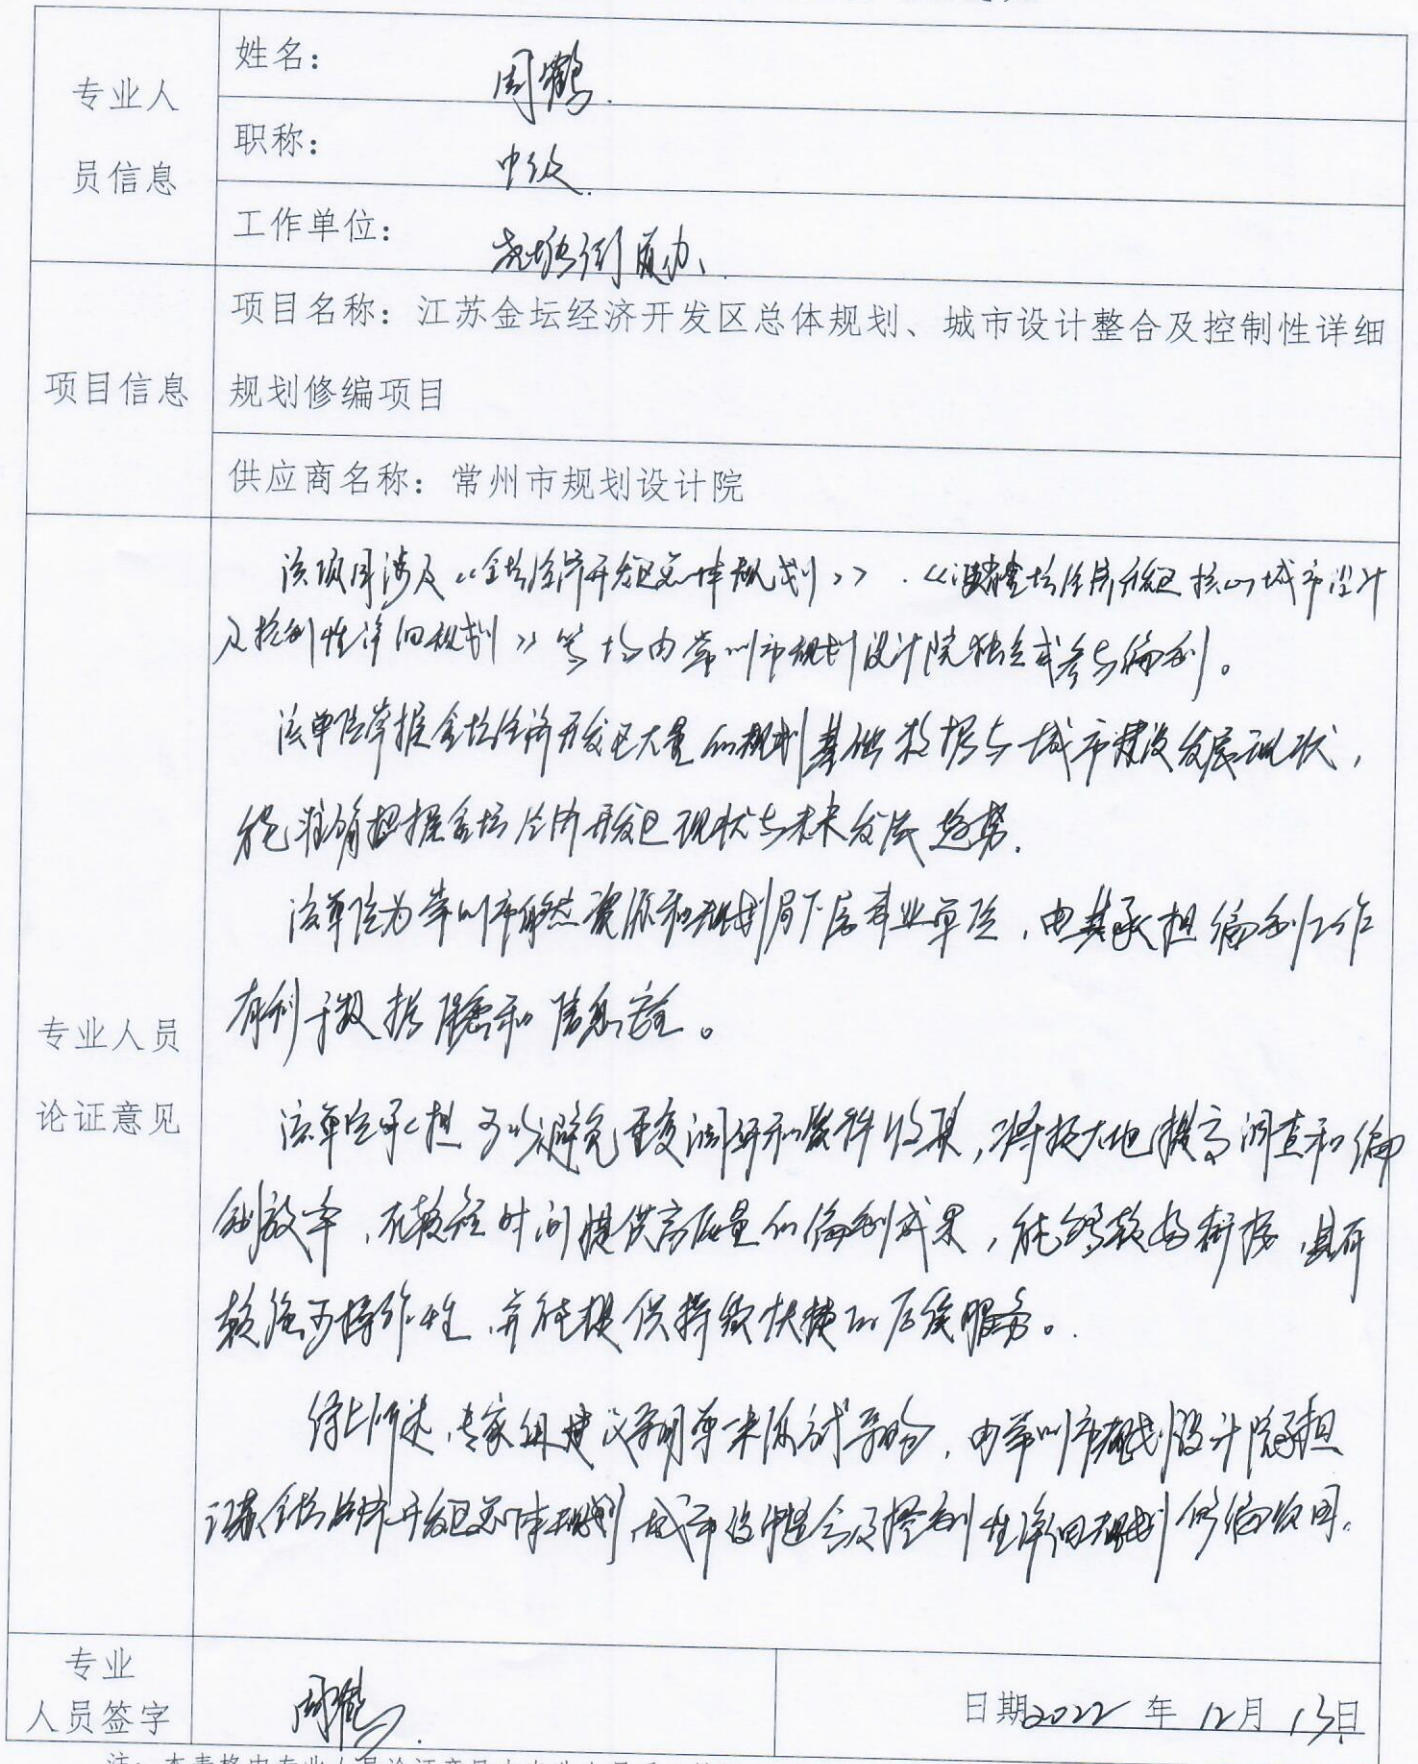 专业人
员信息
姓名：周鹤
职称：中级
工作单位：尧塘街道办
项目信息
项目名称：江苏金坛经济开发区总体规划、城市设计整合及控制性详细
规划修编项目
供应商名称：常州市规划设计院
专业人员
论证意见
该项目涉及《金坛经济开发区总体规划》、《江苏金坛经济开发区核心城市设计
及控制性详细规划》等均由常州市规划设计院独立或参与编制。
该单位掌握金坛经济开发区大量的规划基础数据与城市建设发展现状，
能准确把握金坛经济开发区现状与未来发展趋势.
该单位为常州市自然资源和规划局下属事业单位，由其承担编制工作
有利于数据保密和信息安全。
该单位承担可以避免重复调研和资料收集，将极大地提高调查和编
制效率，在较短时间提供高质量的编制成果，能够较好衔接，具有
较强可操作性，并能提供持续快捷的后续服务。
综上所述，专家组建议采用单一来源方式采购，由常州市规划设计院承担
江苏金坛经济开发区总体规划、城市设计整合及控制性详细规划修编项目。
专业
人员签字
周鹤
日期2022年12月13日